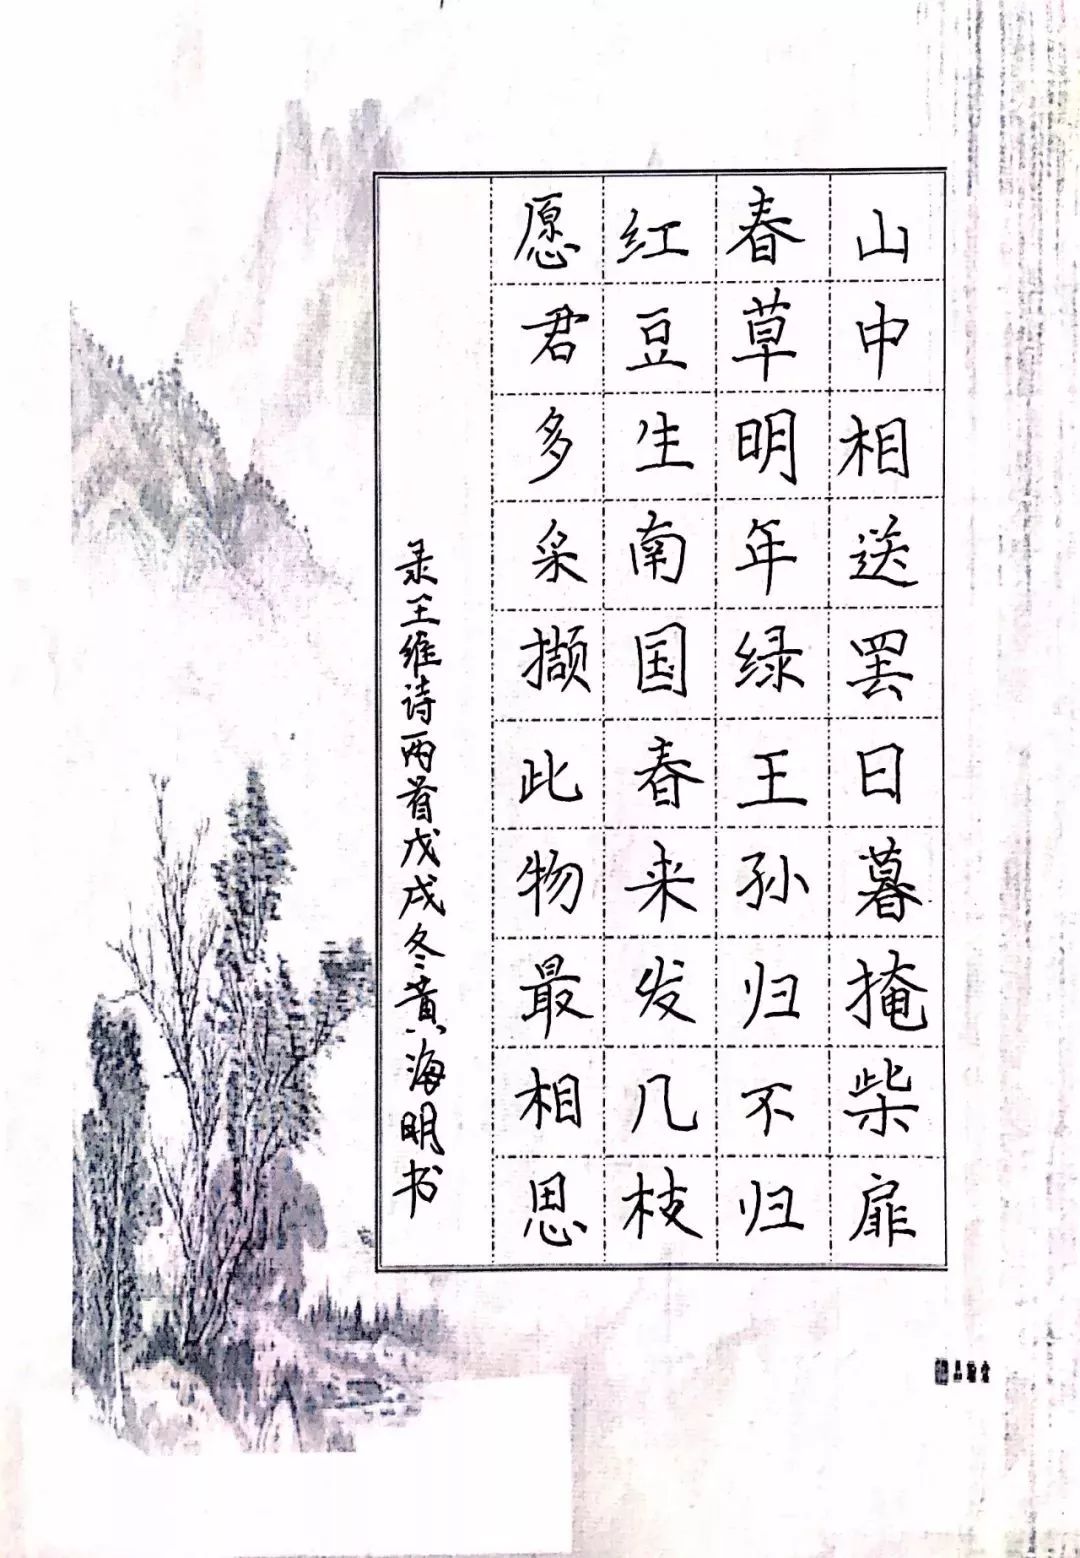 山中相送罢日暮掩柴扉
春草明年绿王孙归不归
红豆生南国春来发几枝
愿君多采撷此物最相思
录王维诗两首戊戌冬黄海明书